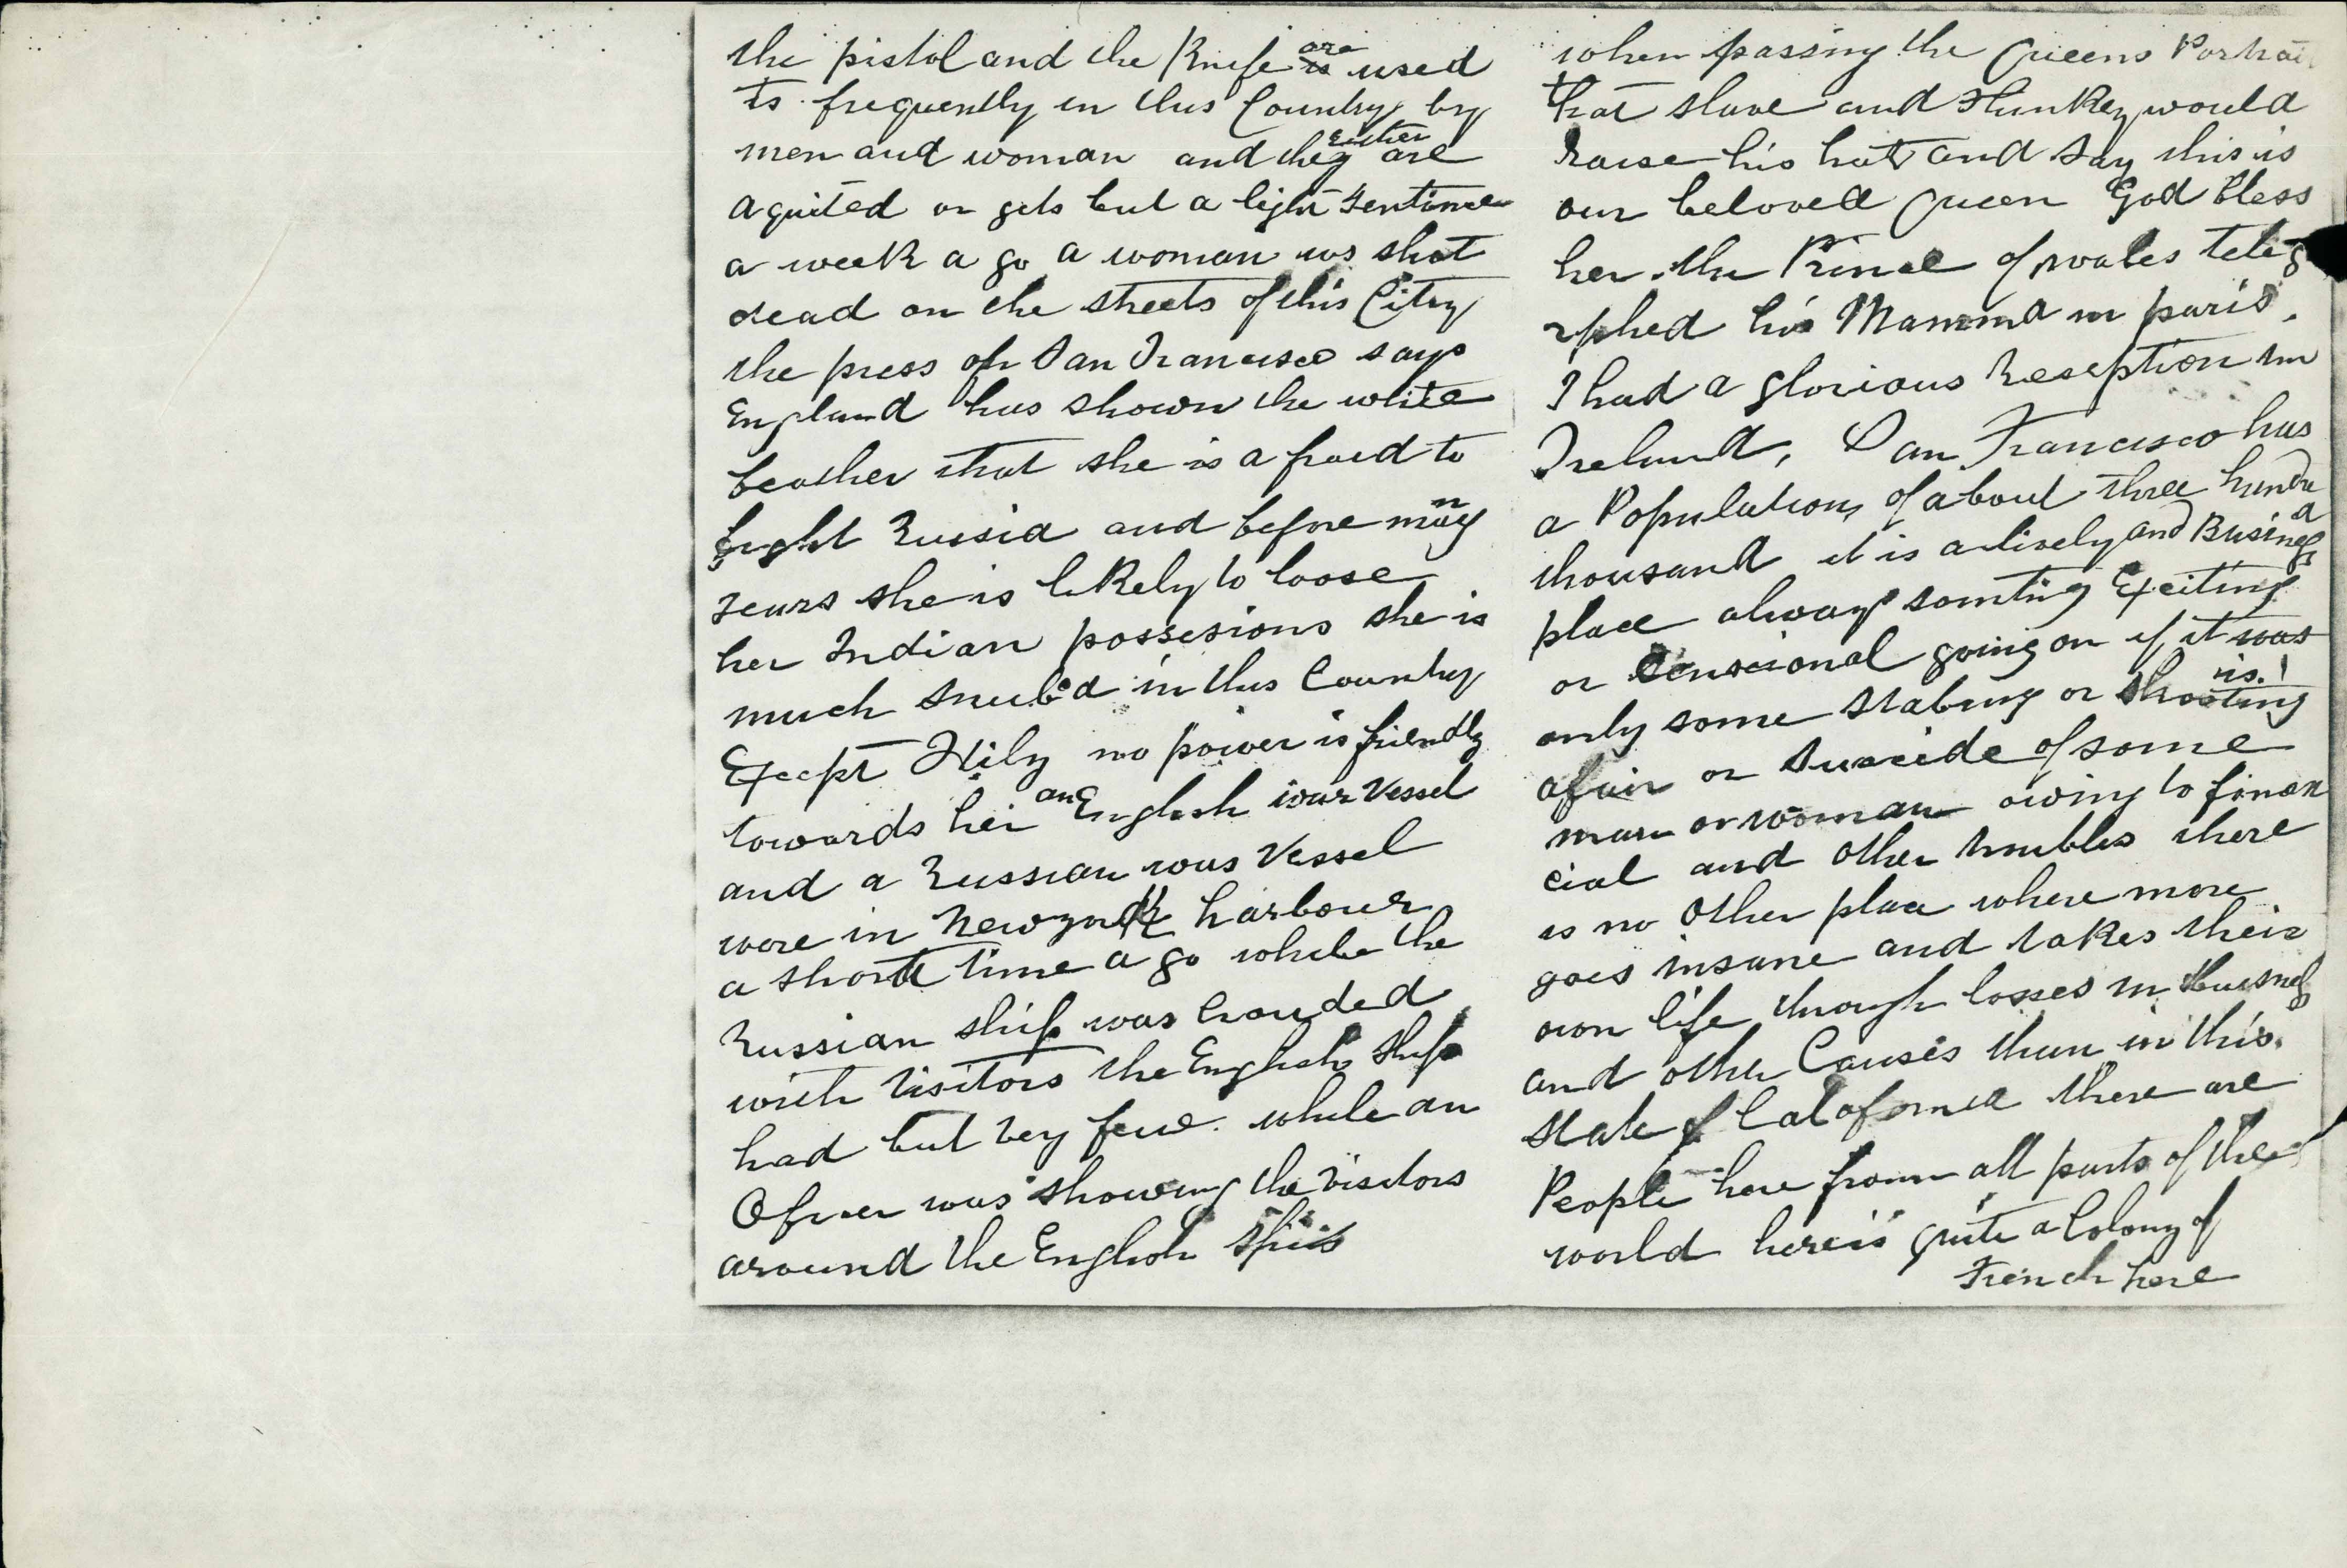 the pistol and the Knife is are used
to frequently in this Country by
men and woman and they either are
aquited or gets but a light sentince
a week a go a woman ws shot
dead on the streets of this City
the press of San Francisco says
England has shown the white
feather that she is a fraid to
fight Russia and before many
years she is likely to loose
her Indian possesions she is
much snub'd in this Country
Except Itily no power is friendly
towards her an English war Vessel
and a Russian war Vessel
were in Newyork harbour
a short time a go while the
Russian ship was Crouded
with Visitors the English Ship
had but very few. while an
Oficer was showing the visitors
around the English Ship
when passing the Queens Portrait
that slave and Flunkey would
raise his hat and say this is
our beloved Queen God bless
her. the Prince of wales teleg
rphed his Mamma in paris,
I had a glorious Reseption in
Ireland, San Francisco has
a Population of about three hundred
thousand it is a lively and Business
place always somting Exciting
or Sensional going on if it was is
only some Stabing or Shooting
afair or Suicide of some
man or woman owing to finan
cial and other troubles there
is no Other place where more
goes insane and takes their
own life through losses in Buisness
and other Causes than in this
State of Calofornia there are
People here from all parts of the
world here is quite a Colony of
French here